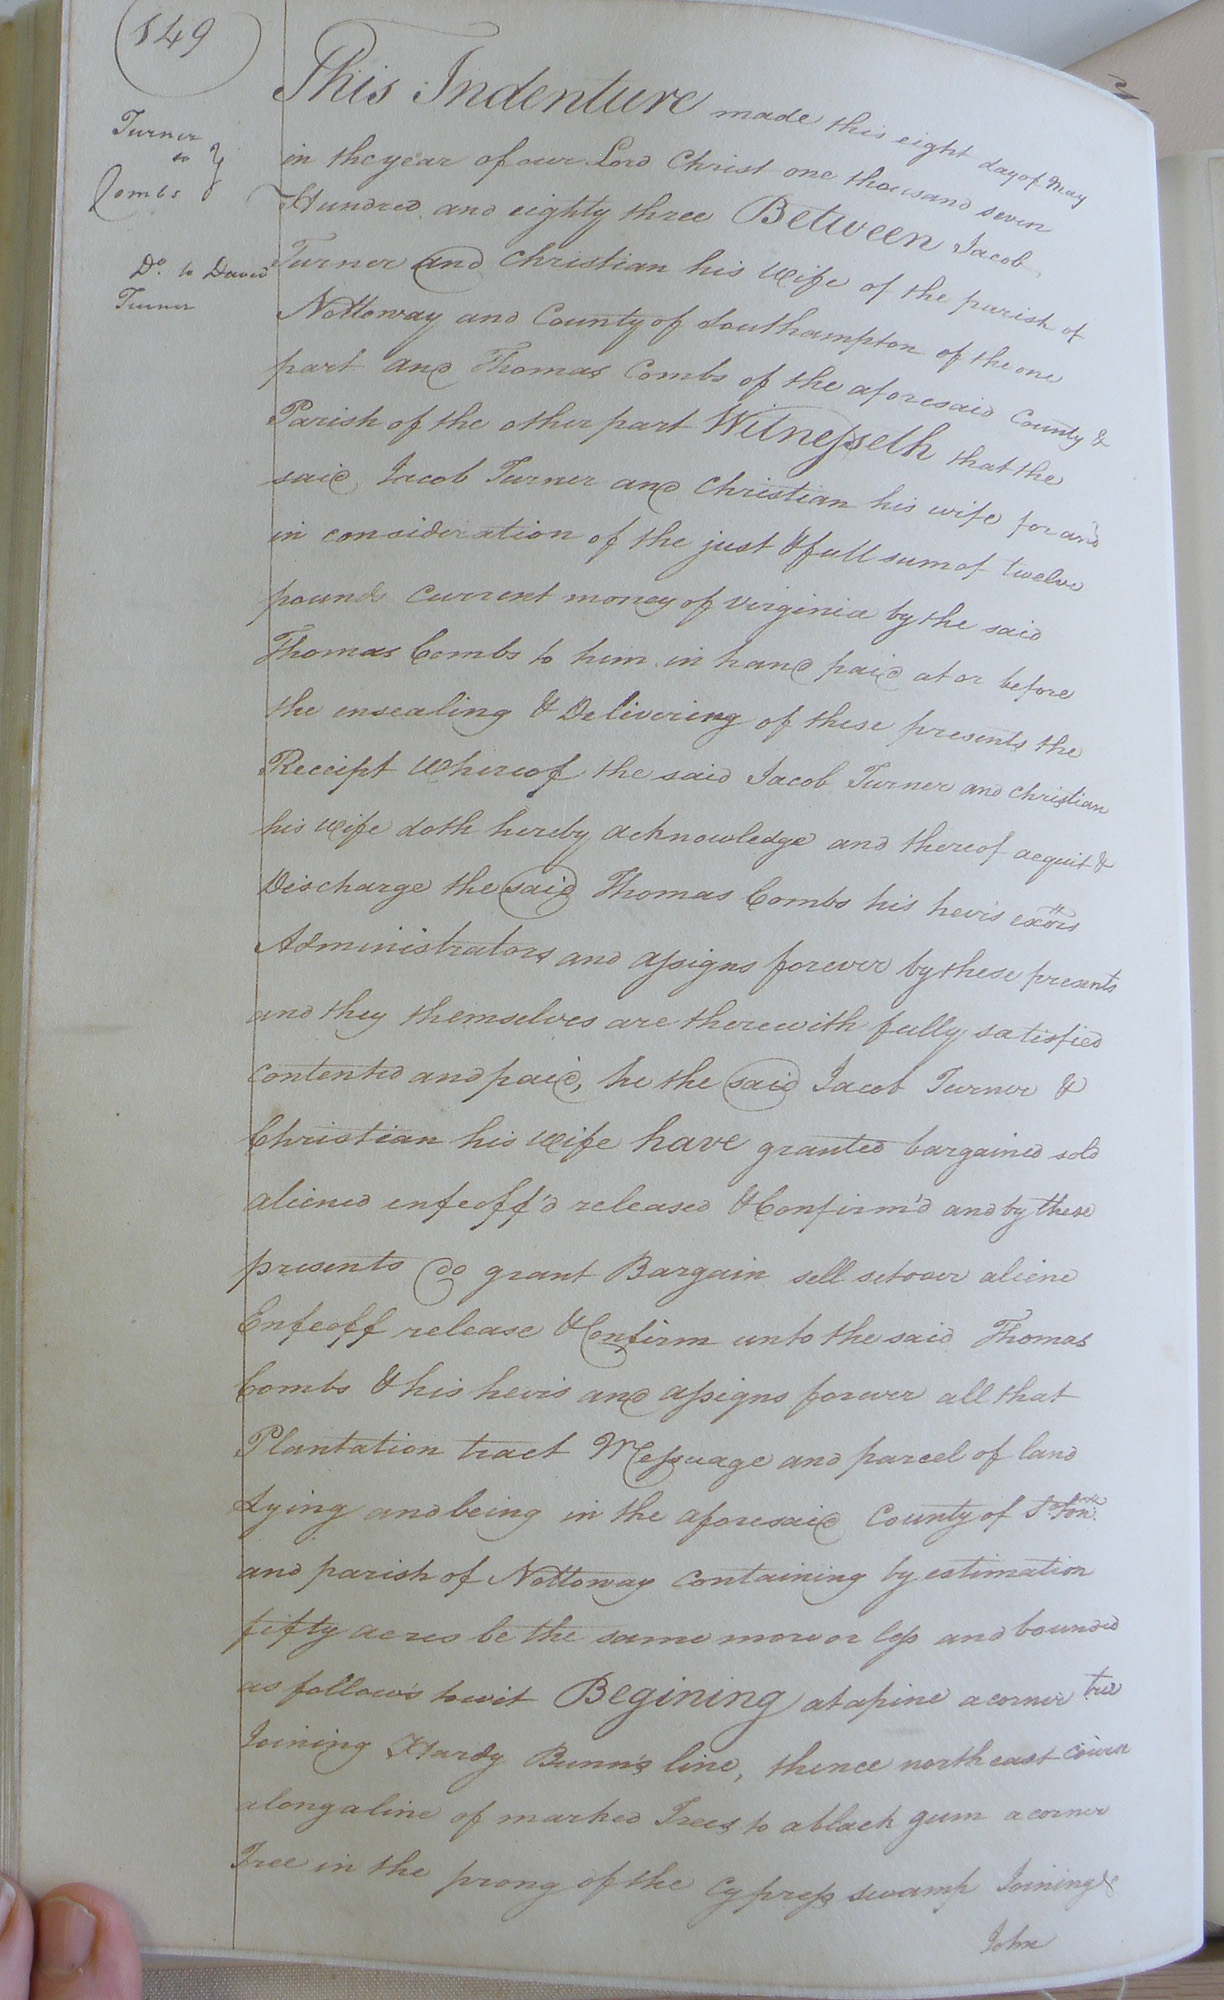 149
Turner
to
Combs
Do. to David
Turner
This Indenture made this eight day of May
in the year of our Lord Christ one thousand seven
Hundred and eighty three Between Jacob
Turner and Christian his Wife of the parish of
Nottoway and County of Southampton of the one
part and Thomas Combs of the aforesaid County &
Parish of the other part Witnesseth that the
said Jacob Turner and Christian his wife for and
in consideration of the just & full sum of twelve
pounds Current money of Virginia by the said
Thomas Combs to him in hand paid at or before
the ensealing & Delivering of these presents the
Receipt Whereof the said Jacob Turner and Christian
his Wife doth hereby acknowledge and thereof acquit &
Discharge the said Thomas Combs his heirs exors
Administrators and assigns forever by these presents
and they themselves are therewith fully satisfied
Contented and paid, he the said Jacob Turner &
Christian his Wife have granted bargained sold
aliened enfeoff'd released & Confirm'd and by these
presents do grant Bargain sell setover aliene
Enfeoff release & Confirm unto the said Thomas
Combs & his heirs and assigns forever all that
Plantation tract Messuage and parcel of land
Lying and being in the aforesaid County of S.ton
and parish of Nottoway Containing by estimation
fifty acres be the same more or less and bounded
as follows towit Begining at a pine a corner tree
Joining Hardy Bunn's line, thence north east course
along a line of marked Trees to a black gum a corner
Tree in the prong of the Cypress swamp Joining &
John